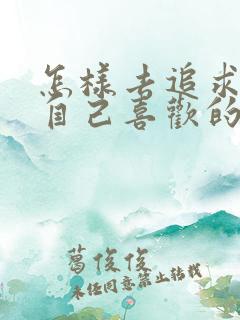 怎樣去追求
自己喜歡的
葛俊俊
未经同意禁止转载